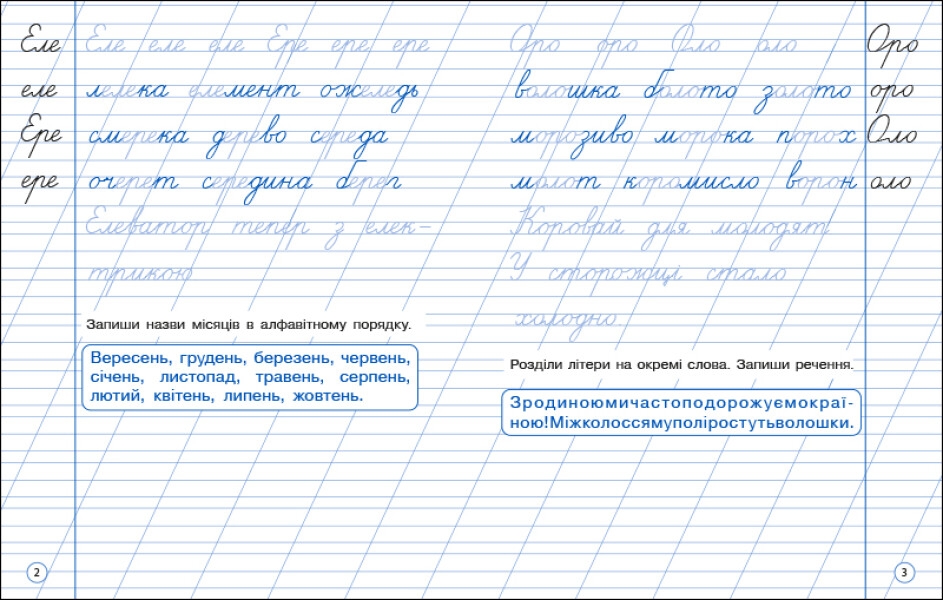 Еле Еле еле еле Ере ере ере
еле лелека елемент ожеледь
Ере смерека дерево середа
ере очерет середина берег
Елеватор тепер з елек-
трикою
Запиши назви місяців в алфавітному порядку.
Вересень, грудень, березень, червень,
січень, листопад, травень, серпень,
лютий, квітень, липень, жовтень.
2
Оро оро Оло оло Оро
волошка болото золото оро
морозиво морока порох Оло
молот коромисло ворон оло
Коровай для молодят.
У сторожці стало
холодно.
Розділи літери на окремі слова. Запиши речення.
Зродиноюмичастоподорожуємокраї-
ною!Міжколоссямуполіростутьволошки.
3